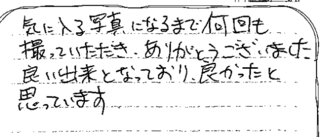 気に入る写真になるまで何回も
撮っていただき、ありがとうございました
良い出来となっており、良かったと
思っています